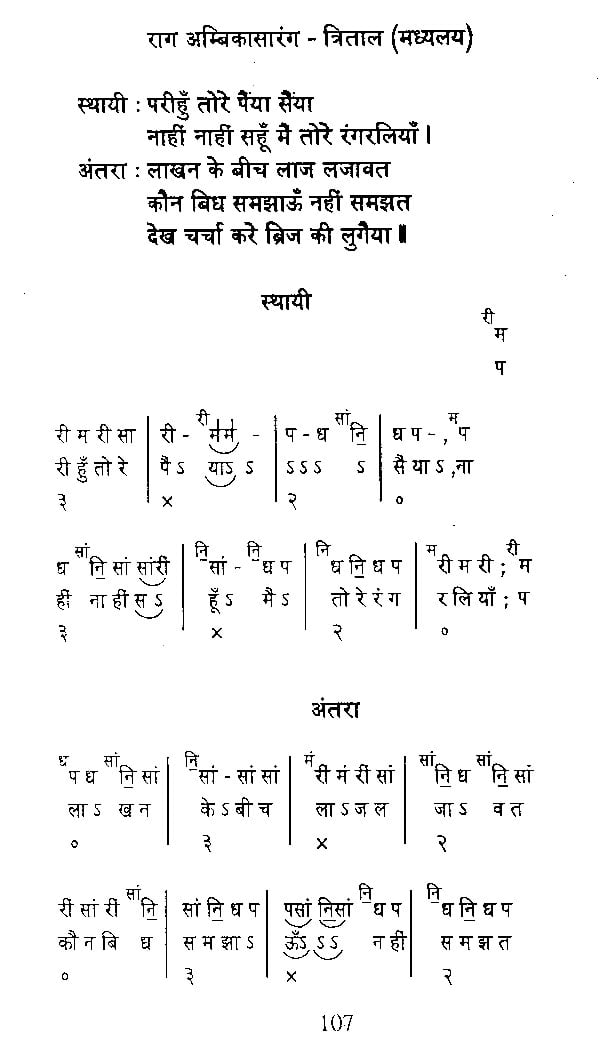 राग अम्बिकासारंग - त्रिताल (मध्यलय)
स्थायी : परीहुँ तोरे पैंया सैंया
नाहीं नाहीं सहूँ मै तोरे रंगरलियाँ ।
अंतरा : लाखन के बीच लाज लजावत
कौन बिध समझाऊँ नहीं समझत
देख चर्चा करे ब्रिज की लुगैया ॥
स्थायी
री
म
प
री म री सा | री - री म॑म॑ - | प - ध सां नि॒ | ध प - , म प
री हुँ तो रे | पै ऽ याऽ ऽ | ऽ ऽ ऽ ऽ | सै या ऽ , ना
३ × २ ०
ध सां नि॒ सां सांरीं | नि॒ सां - नि॒ ध प | नि॒ ध नि॒ ध प | म री म री ; री म
हीं ना हीं सऽ | हूँ ऽ मै ऽ | तो रे रं ग | र लि याँ ; प
३ × २ ०
अंतरा
ध प ध सां नि॒ सां | नि॒ सां - सां सां | मं रीं मं रीं सां | सां नि॒ ध सां नि॒ सां
ला ऽ ख न | के ऽ बी च | ला ऽ ज ल | जा ऽ व त
० ३ × २
रीं सां रीं सां नि॒ | सां नि॒ ध प | पसां नि॒सां नि॒ ध प | नि॒ ध नि॒ ध प
कौ न बि ध | स म झा ऽ | ऊँऽ ऽऽ न हीं | स म झ त
० ३ × २
107